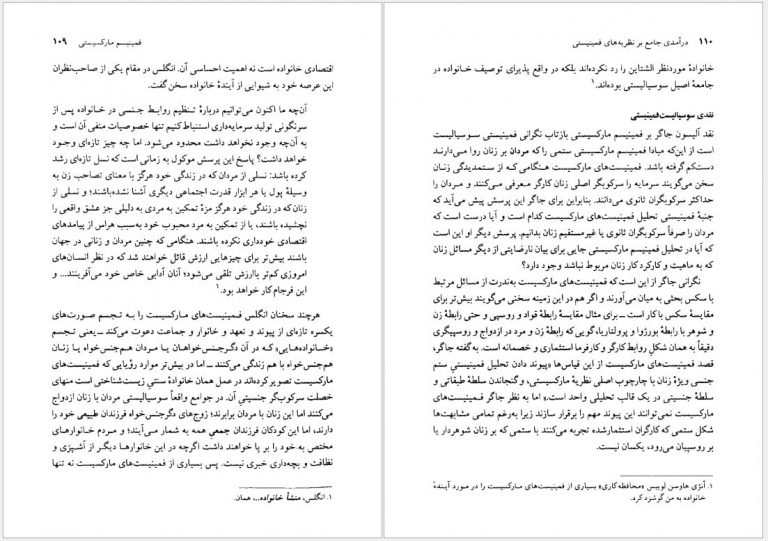 فمینیسم مارکسیستی ۱۰۹
اقتصادی خانواده است نه اهمیت احساسی آن. انگلس در مقام یکی از صاحب‌نظران
این عرصه خود به شیوایی از آیندهٔ خانواده سخن گفت.
آن‌چه ما اکنون می‌توانیم دربارهٔ تنظیم روابط جنسی در خانواده پس از
سرنگونی تولید سرمایه‌داری استنباط کنیم تنها خصوصیات منفی آن است و
به آن‌چه وجود نخواهد داشت محدود می‌شود. اما چه چیز تازه‌ای وجود
خواهد داشت؟ پاسخ این پرسش موکول به زمانی است که نسل تازه‌ای رشد
کرده باشد: نسلی از مردان که در زندگی خود هرگز با معنای تصاحب زن به
وسیلهٔ پول یا هر ابزار قدرت اجتماعی دیگری آشنا نشده‌باشند؛ و نسلی از
زنان که در زندگی خود هرگز مزهٔ تمکین به مردی به دلیلی جز عشق واقعی را
نچشیده باشند، یا از تمکین به مرد محبوب خود به‌سبب هراس از پیامدهای
اقتصادی خودداری نکرده باشند. هنگامی که چنین مردان و زنانی در جهان
باشند بیش‌تر برای چیزهایی ارزش قائل خواهند شد که در نظر انسان‌های
امروزی کم‌تر باارزش تلقی می‌شود؛ آنان آدابی خاص خود می‌آفرینند... و
این فرجام کار خواهد بود.۱
هرچند سخنان انگلس فمینیست‌های مارکسیست را به تجسم صورت‌های
یکسره تازه‌ای از پیوند و تعهد و خانوار و جماعت دعوت می‌کند ــ یعنی تجسم
«خانواده‌هایی» که در آن دگرجنس‌خواهان یا مردان هم‌جنس‌خواه یا زنان
هم‌جنس‌خواه با هم زندگی می‌کنند ــ اما در بیش‌تر موارد رؤیایی که فمینیست‌های
مارکسیست تصویر کرده‌اند در عمل همان خانوادهٔ سنتی زیست‌شناختی است منهای
خصلت سرکوب‌گر جنسیتی آن. در جوامع واقعاً سوسیالیستی مردان با زنان ازدواج
می‌کنند اما این زنان با مردان برابرند؛ زوج‌های دگرجنس‌خواه فرزندان طبیعی خود را
دارند، اما این کودکان فرزندان جمعی همه به شمار می‌آیند؛ و مردم خانوارهای
مختص به خود را بر پا خواهند داشت اگرچه در این خانوارها دیگر از آشپزی و
نظافت و بچه‌داری خبری نیست. پس بسیاری از فمینیست‌های مارکسیست نه تنها
۱. انگلس، منشأ خانواده...، همان.
۱۱۰ درآمدی جامع بر نظریه‌های فمینیستی
خانوادهٔ موردنظر الشتاین را رد نکرده‌اند بلکه در واقع پذیرای توصیف خانواده در
جامعهٔ اصیل سوسیالیستی بوده‌اند.۱
نقدی سوسیالیست‌فمینیستی
نقد آلیسون جاگر بر فمینیسم مارکسیستی بازتاب نگرانی فمینیستی سوسیالیست
است از این‌که مبادا فمینیسم مارکسیستی ستمی را که مردان بر زنان روا می‌دارند
دست‌کم گرفته باشد. فمینیست‌های مارکسیست هنگامی که از ستمدیدگی زنان
سخن می‌گویند سرمایه را سرکوبگر اصلی زنان کارگر معرفی می‌کنند و مردان را
حداکثر سرکوبگران ثانوی می‌دانند. بنابراین برای جاگر این پرسش پیش می‌آید که
جنبهٔ فمینیستی تحلیل فمینیست‌های مارکسیست کدام است و آیا درست است که
مردان را صرفاً سرکوبگران ثانوی یا غیرمستقیم زنان بدانیم. پرسش دیگر او این است
که آیا در تحلیل فمینیسم مارکسیستی جایی برای بیان نارضایتی از دیگر مسائل زنان
که به ماهیت و کارکرد کار زنان مربوط نباشد وجود دارد؟
نگرانی جاگر از این است که فمینیست‌های مارکسیست به‌ندرت از مسائل مرتبط
با سکس بحثی به میان می‌آورند و اگر هم در این زمینه سخنی می‌گویند بیش‌تر برای
مقایسهٔ سکس با کار است ــ برای مثال مقایسهٔ رابطهٔ قواد و روسپی و حتی رابطهٔ زن
و شوهر با رابطهٔ بورژوا و پرولتاریا، گویی که رابطهٔ زن و مرد در ازدواج و روسپیگری
دقیقاً به همان شکل روابط کارگر و کارفرما استثماری و خصمانه است. به‌گفته جاگر،
قصد فمینیست‌های مارکسیست از این قیاس‌ها «پیوند دادن تحلیل فمینیستیِ ستم
جنسی ویژهٔ زنان با چارچوب اصلی نظریهٔ مارکسیستی، و گنجاندن سلطهٔ طبقاتی و
سلطهٔ جنسیتی در یک قالب تحلیلی واحد است.» اما به نظر جاگر فمینیست‌های
مارکسیست نمی‌توانند این پیوند مهم را برقرار سازند زیرا به‌رغم تمامی مشابهت‌ها
شکل ستمی که کارگران استثمارشده تجربه می‌کنند با ستمی که بر زنان شوهردار یا
بر روسپیان می‌رود، یکسان نیست.
۱. آنژی هاوسن لوییس «محافظه‌کاری» بسیاری از فمینیست‌های مارکسیست را در مورد آیندهٔ
خانواده به من گوشزد کرد.